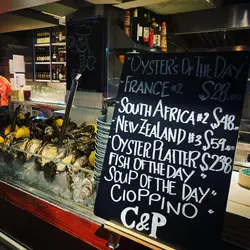 "OYSTER'S OF THE DAY"
FRANCE #2 $28.
SOUTH AFRICA #2 $48.
NEW ZEALAND #3 $59.
OYSTER PLATTER $298.
FISH OF THE DAY "
SOUP OF THE DAY "
CIOPPINO
C&P